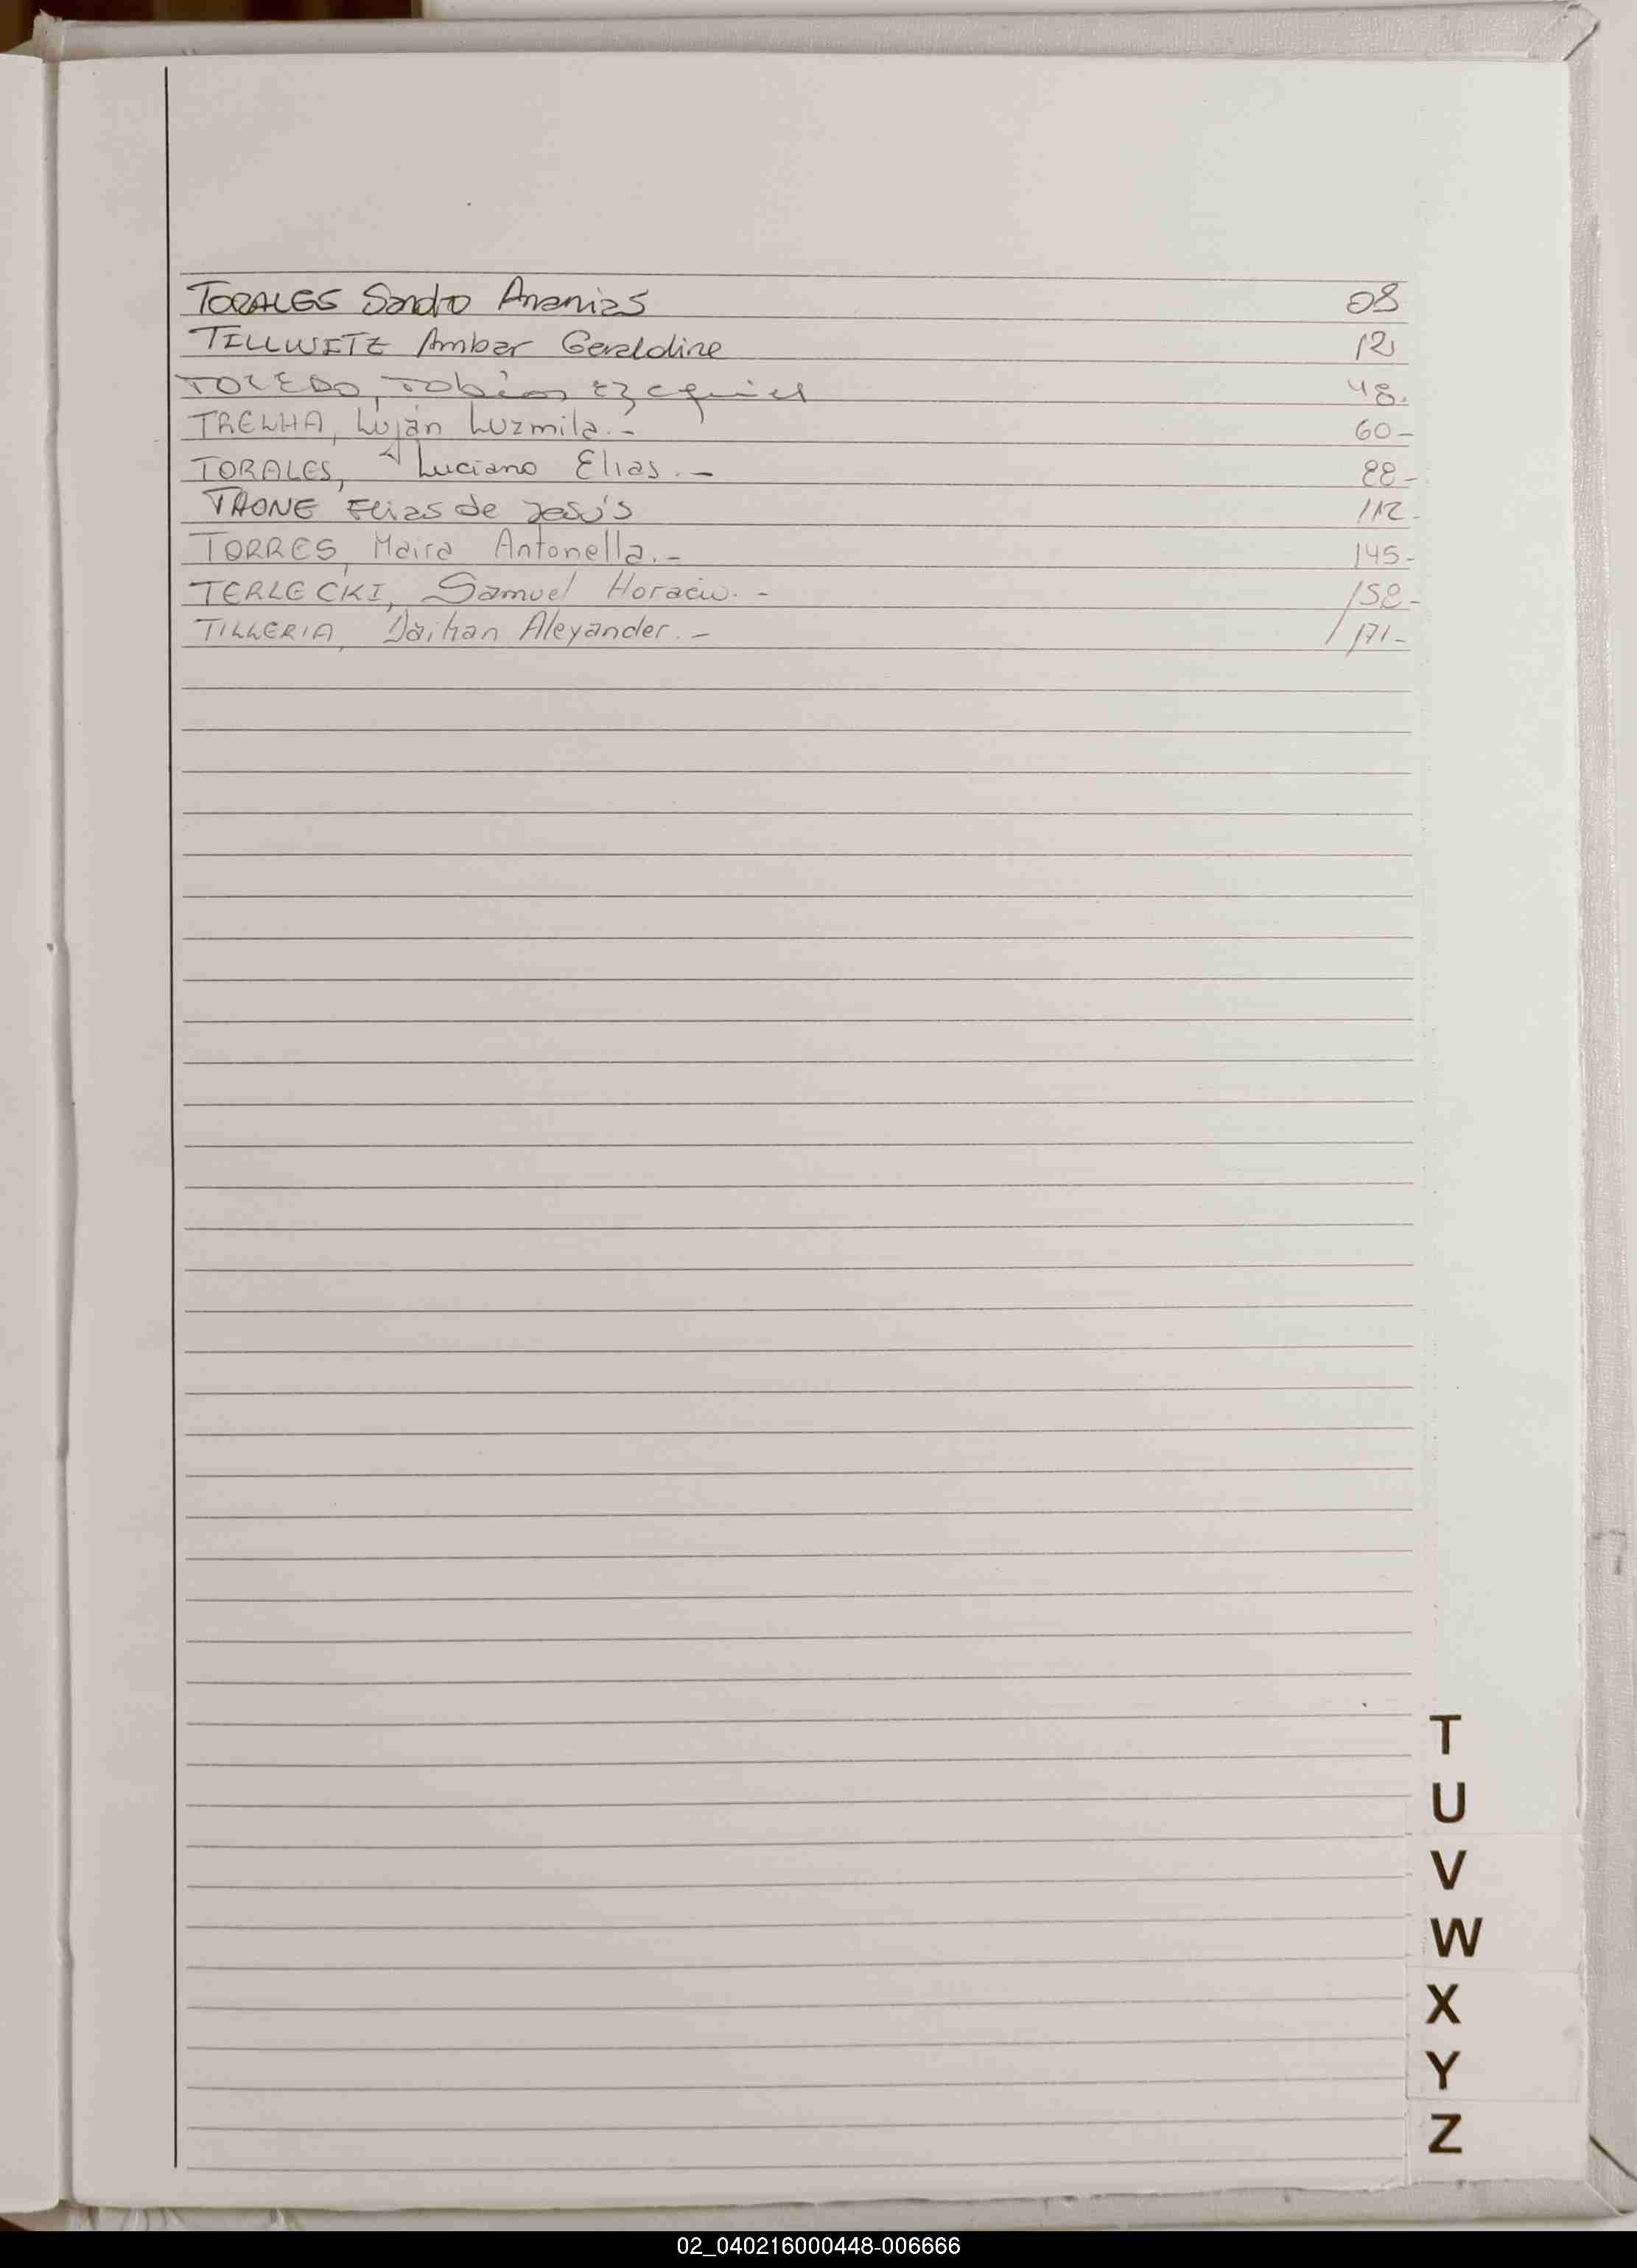 TORALES Sandro Ananias 08
TILLWITZ Ambar Geraldine 12
TOLEDO, Tobías Ezequiel 48.
TRELHA, Luján Luzmila.- 60-
TORALES, Luciano Elias.- 88-
TAONE Elias de Jesús 112-
TORRES, Maira Antonella.- 145-
TERLECKI, Samuel Horacio.- 158-
TILLERIA, Daihan Alexander.- 171-
T
U
V
W
X
Y
Z
02_040216000448-006666